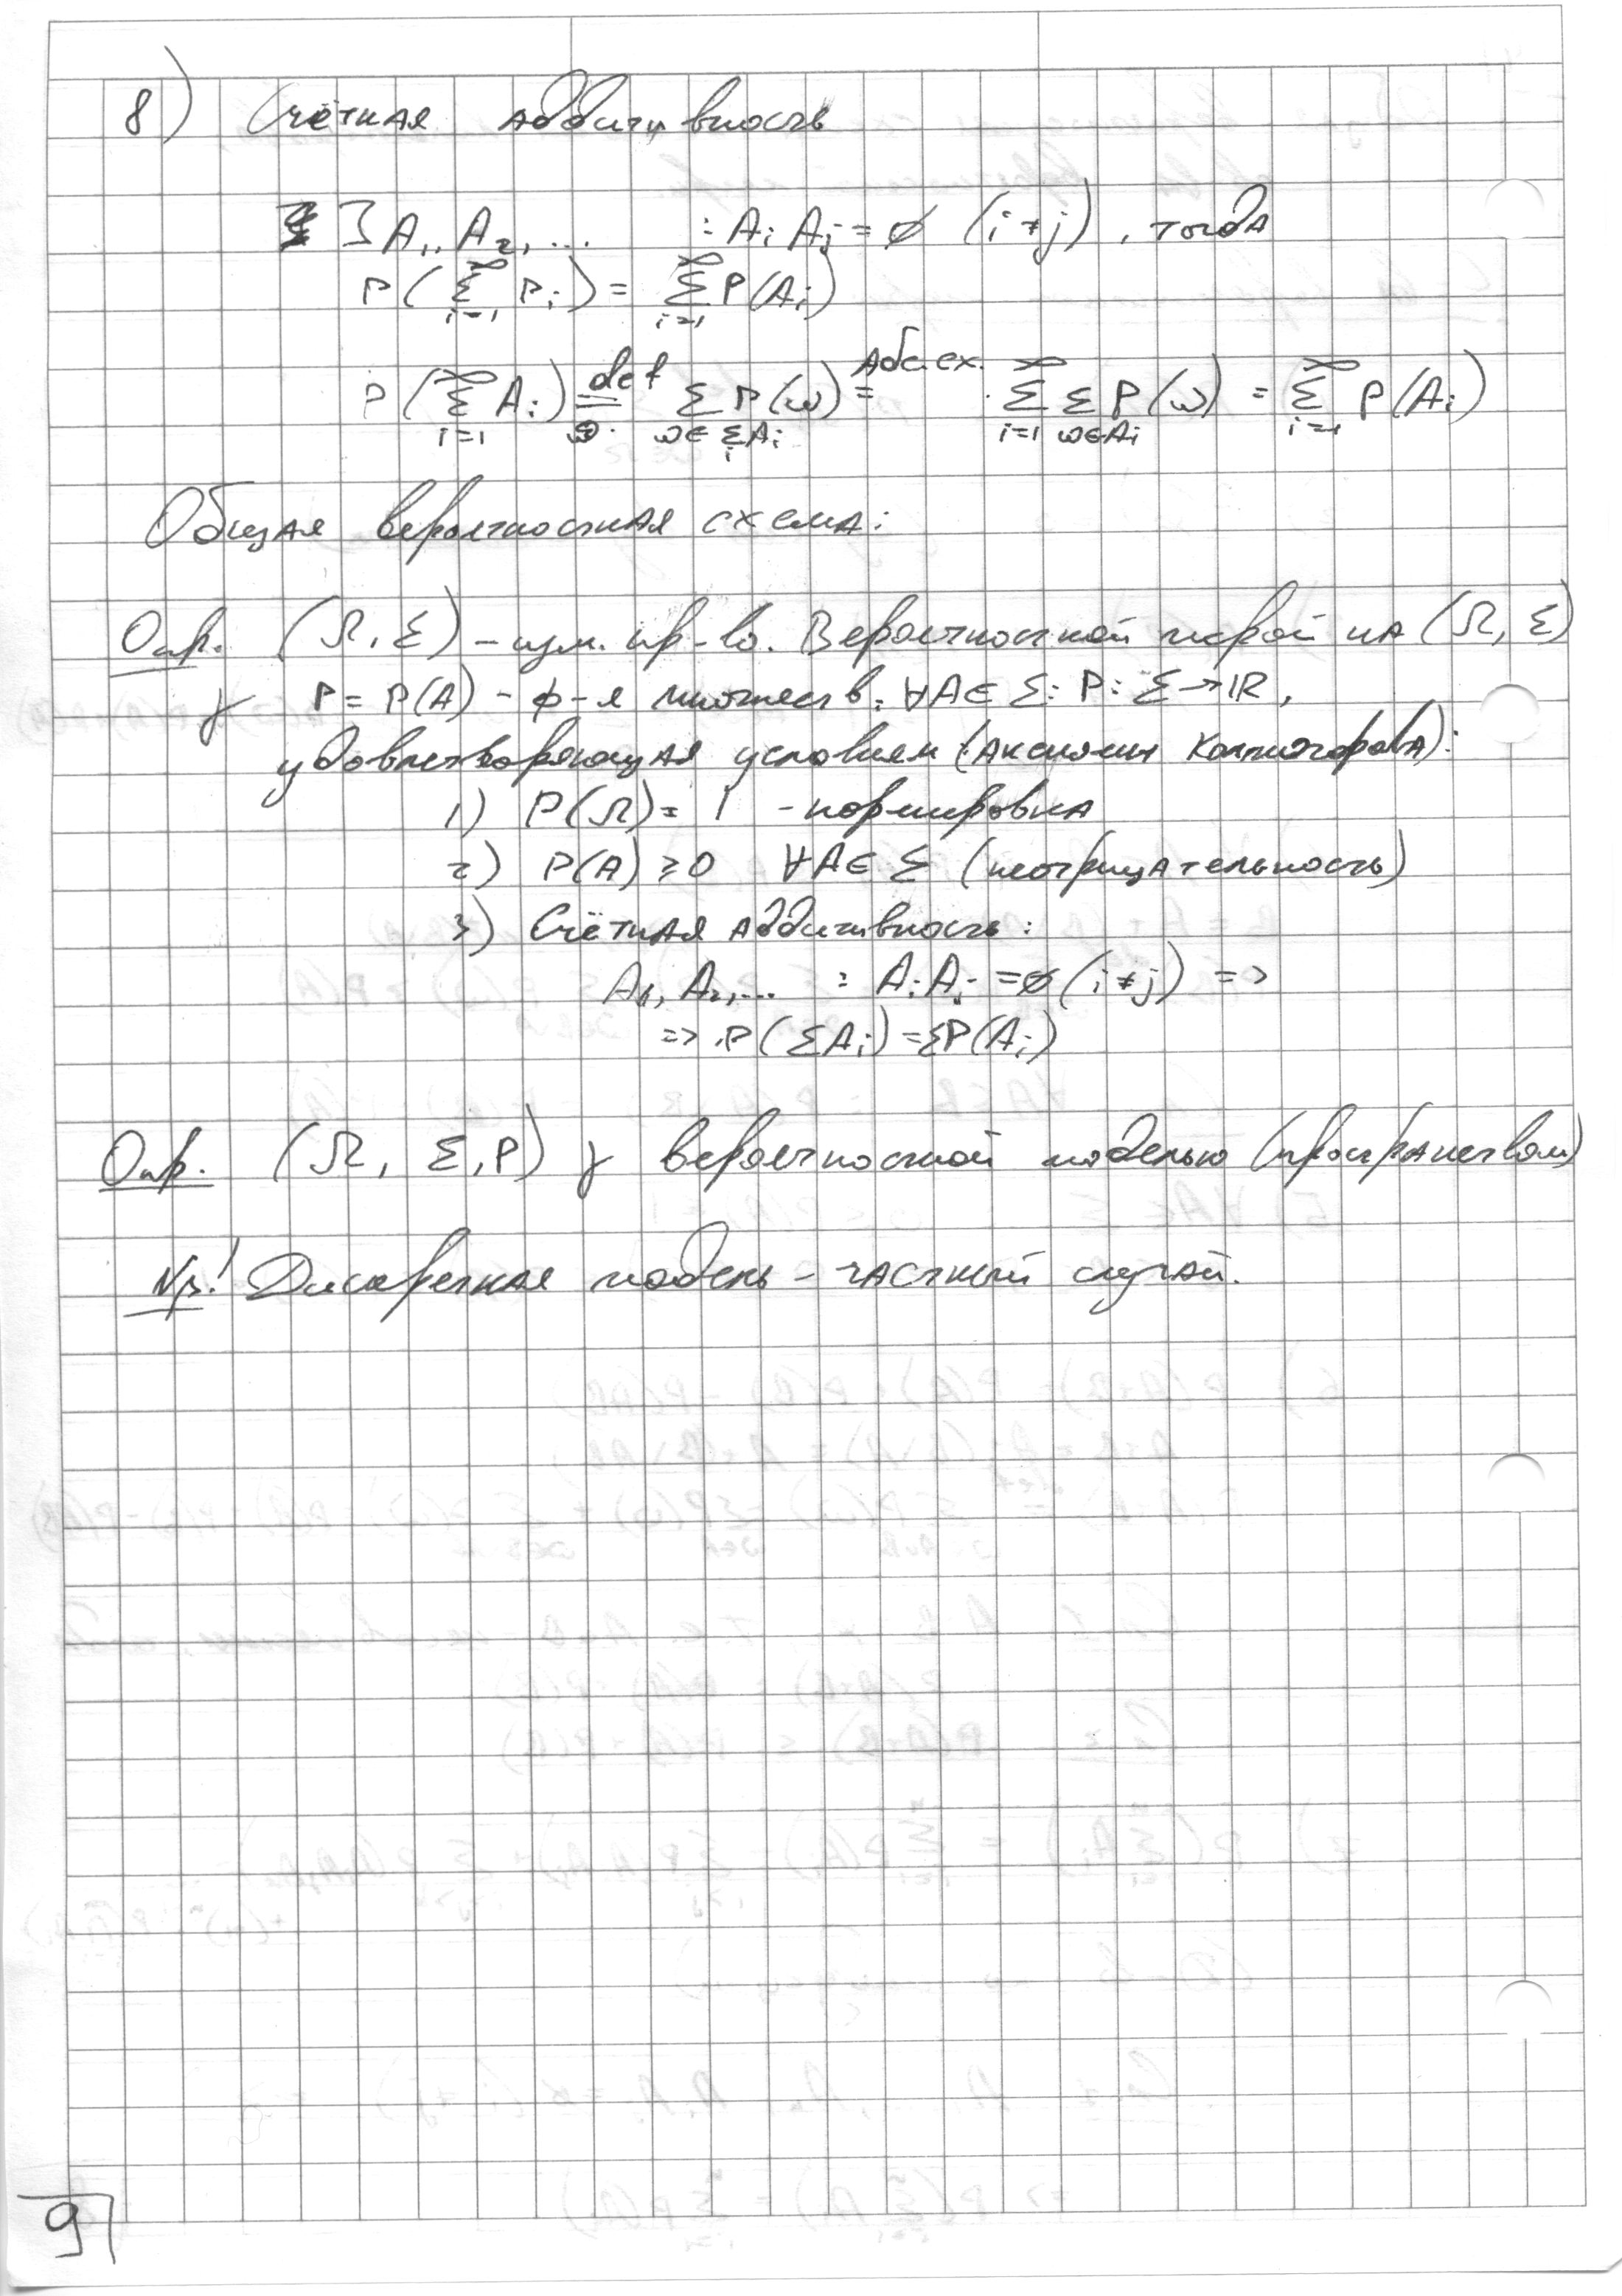 8) Счётная аддитивность
∃ A₁, A₂, ... : AᵢAⱼ = ∅ (i ≠ j), тогда
P(∑_{i=1}^{∞} Pᵢ) = ∑_{i=1}^{∞} P(Aᵢ)
P(∑_{i=1}^{∞} Aᵢ) =^{def} ∑_{ω∈∑ᵢAᵢ} P(ω) =^{абс.сх.} ∑_{i=1}^{∞} ∑_{ω∈Aᵢ} P(ω) = ∑_{i=1}^{∞} P(Aᵢ)
Общая вероятностная схема:
Опр. (Ω, Σ) - изм. пр-во. Вероятностной мерой на (Ω, Σ)
γ P = P(A) - ф-я множеств. ∀A∈Σ: P: Σ→ℝ,
удовлетворяющая условиям (аксиомы Колмогорова):
1) P(Ω) = 1 - нормировка
2) P(A) ≥ 0 ∀A∈Σ (неотрицательность)
3) Счётная аддитивность:
A₁, A₂, ... : AᵢAⱼ = ∅ (i ≠ j) =>
=> P(∑Aᵢ) = ∑P(Aᵢ)
Опр. (Ω, Σ, P) γ вероятностной моделью (пространством)
NB! Дискретная модель - частный случай.
9